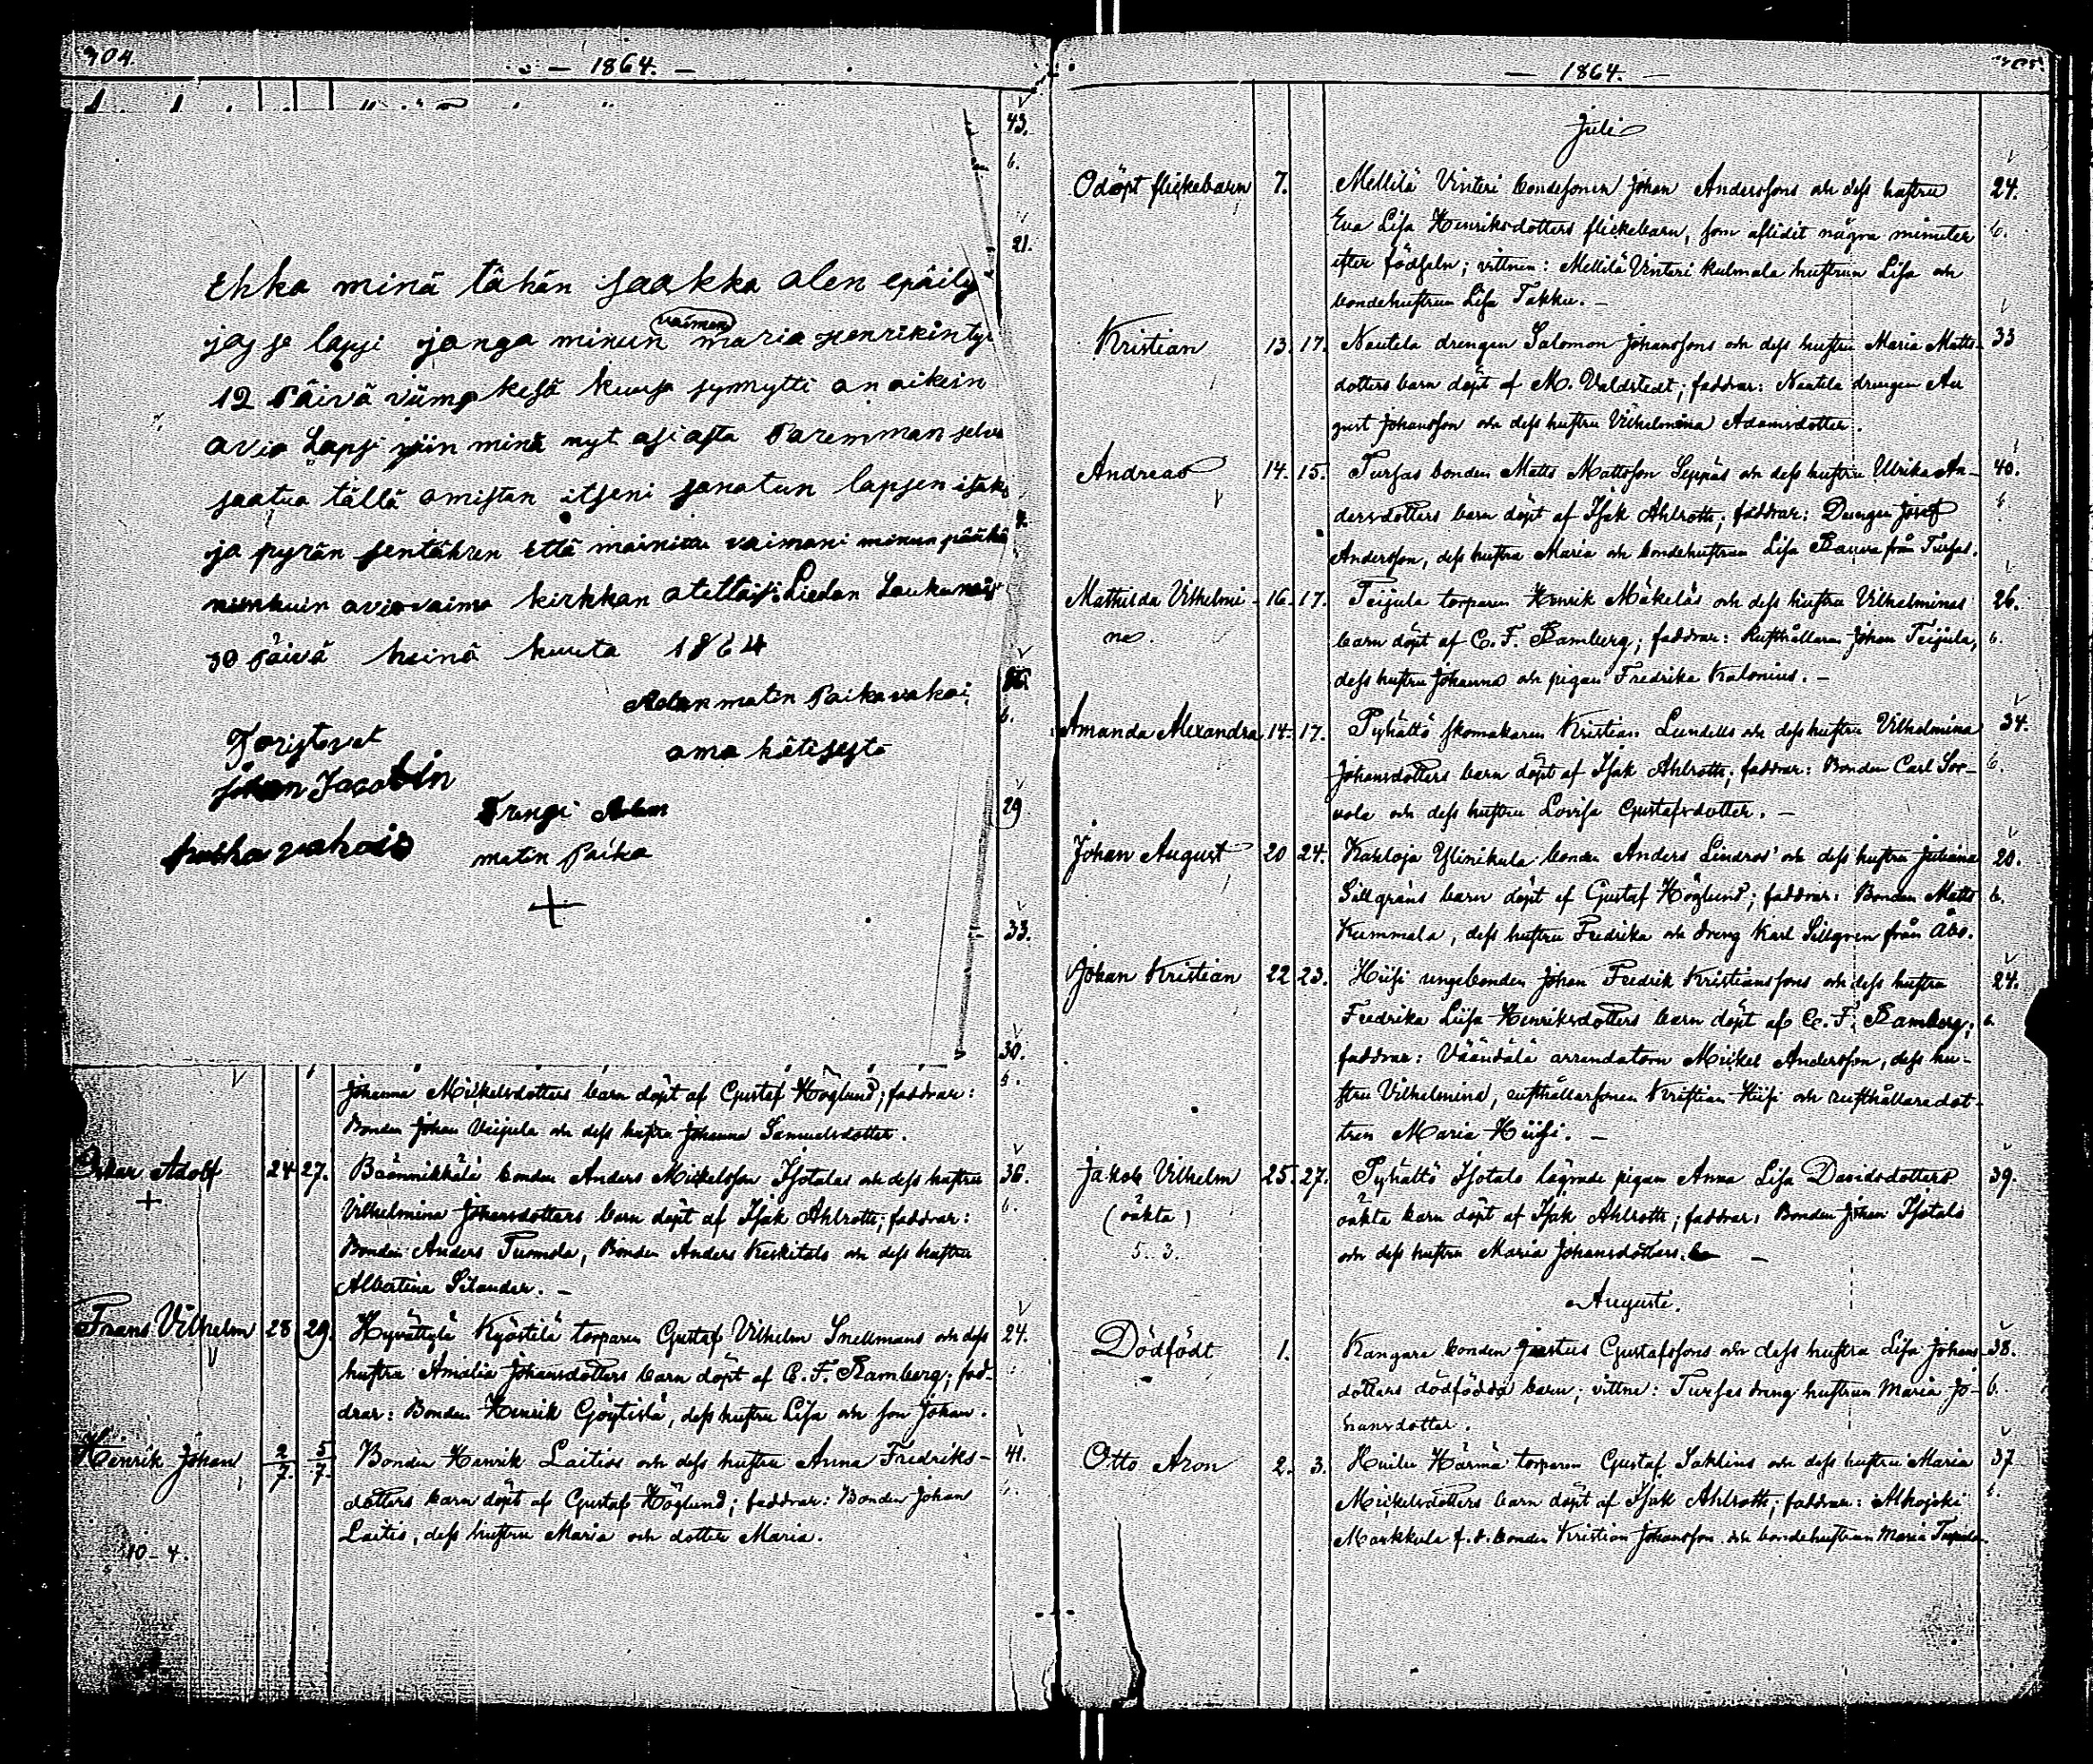 304.
— 1864. —
43.
6.
21.
Ehka minä tähän saakka olen epäily
jos se lapsi jonga minun vaimon maria Henrikintyt
12 Päivä viime kesä kuusa synnytti on oikein
avio Lapsi niin minä nyt asiasta Paremman selvu
saatua tällä omistan itseni sanotun lapsen isäks
ja pyrän sentähren että mainittu vaimoni minun pääkä
niinkuin aviovaimo kirkkon otettaisi. Liedon Loukunais
30 Päivä heinä kuuta 1864
Adam matin Paika vakoi
oma kätisestä
Toristavat
johan Jacobin
Trengi Adam
matin Paika
29
33.
30.
Johanna Mickelsdotters barn döpt af Gustaf Höglund; faddrar:
Bonden Johan Veijula och dess hustru Johanna Samuelsdotter.
Oskar Adolf 24 27. bonden Anders Mickelsson Isotalas och dess hustru 36.
Vilhelmina Johansdotters barn döpt af Isak Ahlroth; faddrar: 6.
Bonden Anders Tuomola, Bonden Anders Keskitalo och dess hustru
Albertina Silander. —
Frans Vilhelm 28 29. Hyvättylä Kyöstilä torparen Gustaf Vilhelm Snellmans och dess 24.
hustru Amalia Johansdotters barn döpt af C. F. Ramberg; fad-
drar: Bonden Henrik dess hustru Lisa och son Johan.
Henrik Johan 2/7. 5/7. Bonden Henrik Laitios och dess hustru Anna Fredriks- 41.
dotters barn döpt af Gustaf Höglund; faddrar: Bonden Johan
Laitis, dess hustru Maria och dotter Maria.
10 – 4.
— 1864. —
305.
Juli
Odöpt flickebarn 7. Mellilä Vinteri bondesonen Johan Anderssons och dess hustru 24.
Eva Lisa Henriksdotters flickebarn, som aflidit några minuter 6.
efter födseln; vittnen: Mellilä Vinteri Kulmala hustrun Lisa och
bondehustrun Lisa Takku. —
Kristian 13. 17. Nautela drengen Salomon Johanssons och dess hustru Maria Matts- 33
dotters barn döpt af M. Valdstedt; faddrar: Nautela drengen Au
gust Johansson och dess hustru Vilhelmina Adamsdotter.
Andreas 14. 15. Tursas bonden Matts Mattsson Seppäs och dess hustru Ulrika An- 40.
dersdotters barn döpt af Isak Ahlroth; faddrar: Drengen Josef
Andersson, dess hustru Maria och bondehustrun Lisa från Tursas.
Mathilda Vilhelmi- 16. 17. Teijula torparen Henrik Mäkeläs och dess hustru Vilhelminas 26.
na. barn döpt af C. F. Ramberg; faddrar: Rusthållaren Johan Teijula, 6.
dess hustru Johanna och pigan Fredrika Kalonius. —
Amanda Alexandra 14. 17. Pyhältö skomakaren Kristian Lundells och dess hustru Vilhelmina 34.
Johansdotters barn döpt af Isak Ahlroth; faddrar: Bonden Carl Sor- 6.
vola och dess hustru Lovisa Gustafsdotter. —
Johan August 20 24. Karloja Ylinikula bonden Anders Lindros' och dess hustru Juliana 20.
Sillgrens barn döpt af Gustaf Höglund; faddrar: Bonden Matts 6.
Kummala, dess hustru Fredrika och dreng Karl Sillgren från Åbo.
Johan Kristian 22 23. Hiisi ungebonden Johan Fredrik Kristianssons och dess hustru 24.
Fredrika Lisa Henriksdotters barn döpt af C. F. Ramberg; 6.
faddrar: Väändälä arrendatorn Mickel Andersson, dess hu-
stru Vilhelmina, rusthållarsonen Kristian Hiisi och rusthållaredot-
tren Maria Hiisi. —
Jakob Vilhelm 25. 27. Pyhältö Isotalo lägrade pigan Anna Lisa Davidsdotters 39.
(oäkta) oäkta barn döpt af Isak Ahlroth; faddrar: Bonden Johan Isotalo
5. 3. och dess hustru Maria Johansdotters. —
Augusti.
Dödfödt 1. Kangare bonden Justus Gustafssons och dess hustru Lisa Johans- 38.
dotters dödfödda barn; vittne: Tursas dreng hustrun Maria Jo- 6.
hansdotter.
Otto Aron 2. 3. Huilu Härmä torparen Gustaf Saklins och dess hustru Maria 37
Mickelsdotters barn döpt af Isak Ahlroth; faddrar: Alhojoki 6.
Markkula f. d. bonden Kristian Johansson och bondehustrun Maria